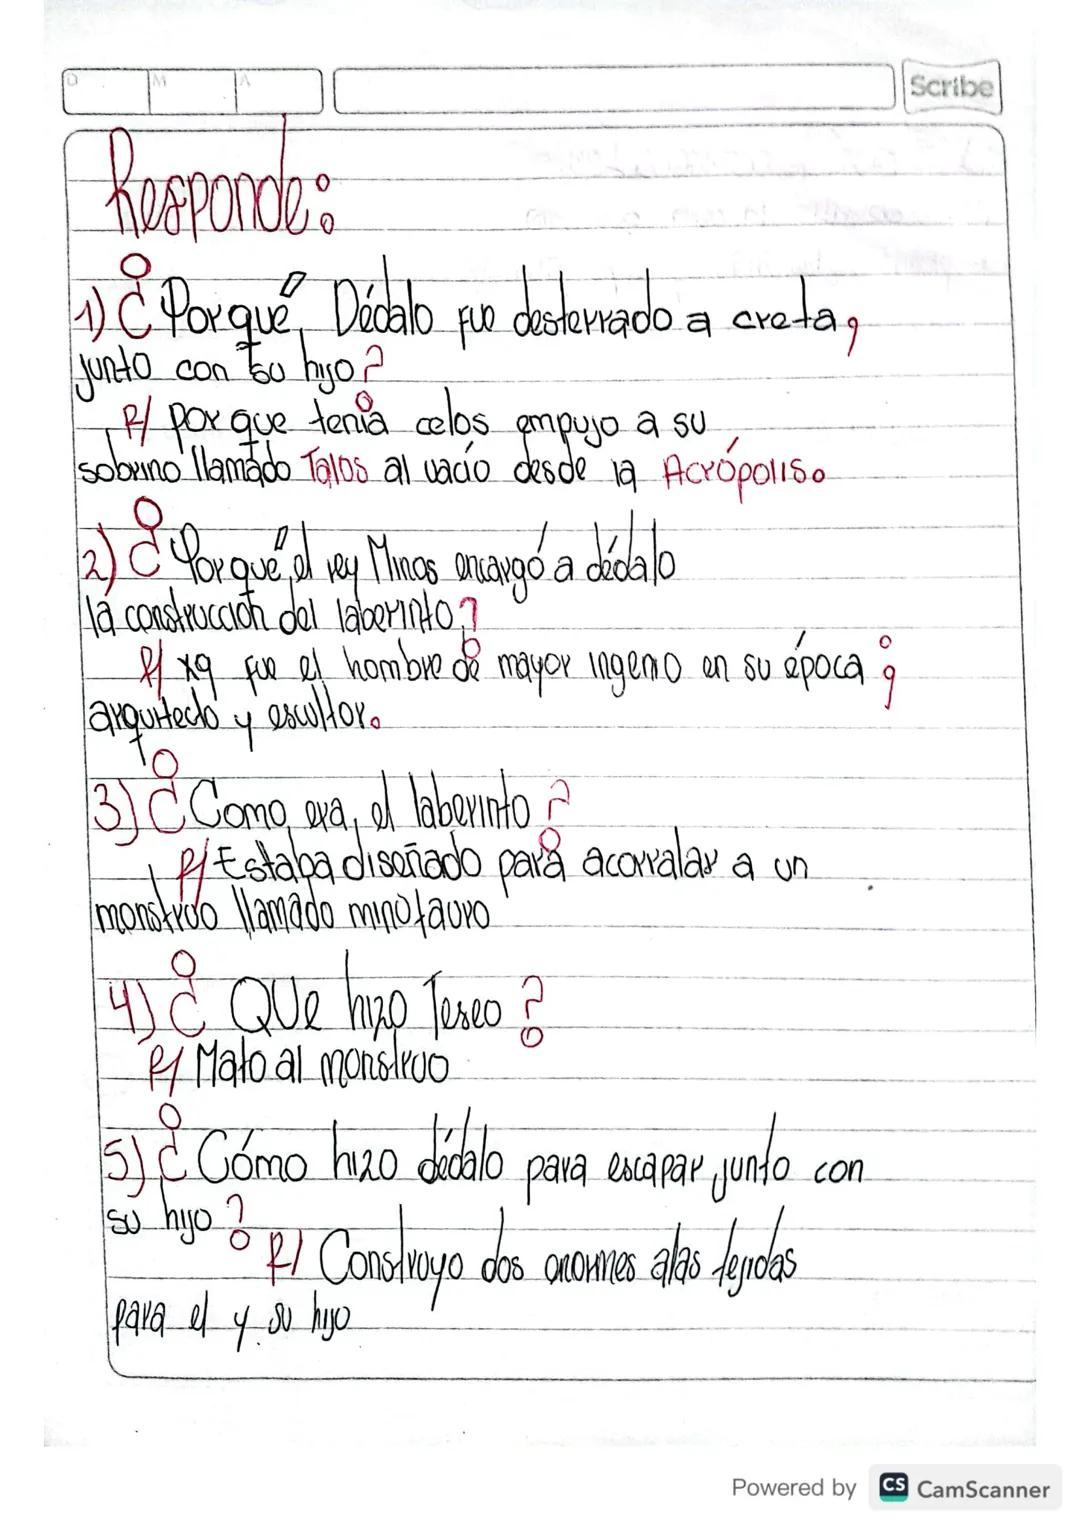 D M A
Scribe
Responde:
1) ¿Por qué, Dédalo fue desterrado a creta,
junto con su hijo?
R/ por que tenía celos empujo a su
sobrino llamado Talos al vacío desde la Acrópolis.
2) ¿Por qué, el rey Minos encargó a dédalo
la construcción del laberinto?
R/ xq fue el hombre de mayor ingenio en su época ;
arquitecto y escultor.
3) ¿Como, era, el laberinto?
R/ Estaba diseñado para acorralar a un
monstruo llamado minotauro
4) ¿QUe hizo Teseo?
R/ Mato al monstruo
5) ¿Cómo hizo dédalo para escapar, junto con
su hijo?
R/ Construyo dos enormes alas tejidas
para el y su hijo
Powered by CS CamScanner